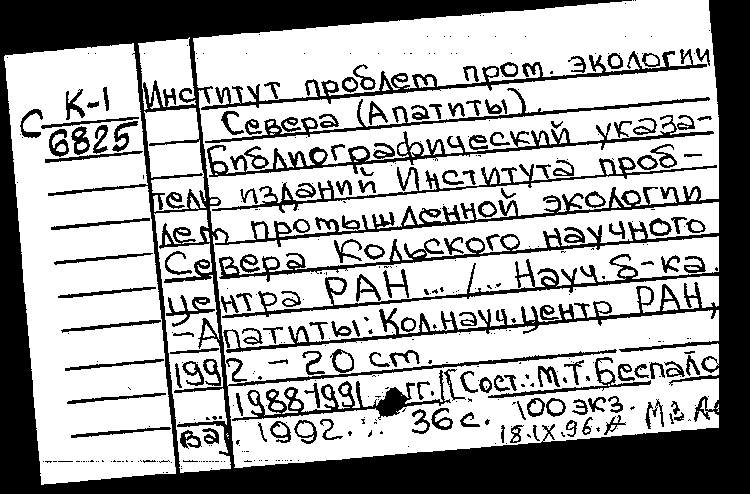 С К-1
6825
Институт проблем пром. экологии
Севера (Апатиты).
Библиографический указа-
тель изданий Института проб-
лем промышленной экологии
Севера Кольского научного
центра РАН ... /... Науч. б-ка.
-Апатиты: Кол.науч.центр РАН,
1992. - 20 см.
... 1988-1991 гг. || Сост.: М.Т. Беспало
ва]. 1992. ... 36 с. 100 экз.
18.IX.96.